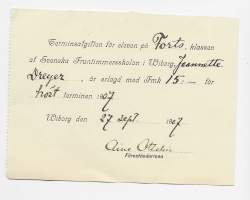 Terminsafgiften för eleven på Forts. klassen
af Svenska Fruntimmersskolan i Wiborg, Jeannette
Dreyer, är erlagd med Fmk 15:— för
höst terminen 1907
Wiborg den 27 sept. 1907
Föreståndarinna